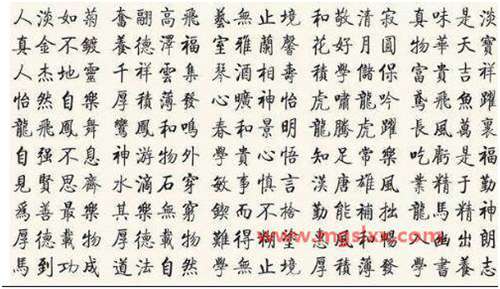 人淡如菊 奮翮高飛 藝無止境 和敬清寂 真味是淡
真金不鍍 養德澤福 室雅蘭馨 花好月圓 物華天寶
人杰地靈 千祥雲集 琴酒相壽 積學儲保 富貴吉祥
怡然自樂 厚積薄發 心曠神怡 虎嘯龍吟 鳶飛魚躍
龍飛鳳舞 鸞鳳和鳴 春和景明 龍騰虎躍 長風萬裏
自强不息 神游物外 學貴心悟 知足常樂 吃虧是福
見賢思齊 水滴石穿 敏事慎言 漢唐雄風 業精于勤
爲善最樂 其樂無窮 鍥而不捨 勤能補拙 龍馬精神
厚德載物 厚德載物 難得 出朗
馬到功成 道法自然 學無止境 厚積薄發 學書養志
www.mgslxx.com